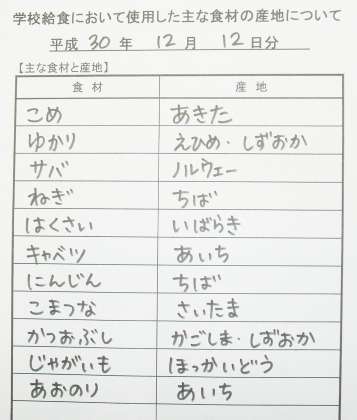 学校給食において使用した主な食材の産地について
平成 30 年 12 月 12 日分
【主な食材と産地】
食材 産地
こめ あきた
ゆかり えひめ・しずおか
サバ ノルウェー
ねぎ ちば
はくさい いばらき
キャベツ あいち
にんじん ちば
こまつな さいたま
かつおぶし かごしま・しずおか
じゃがいも ほっかいどう
あおのり あいち